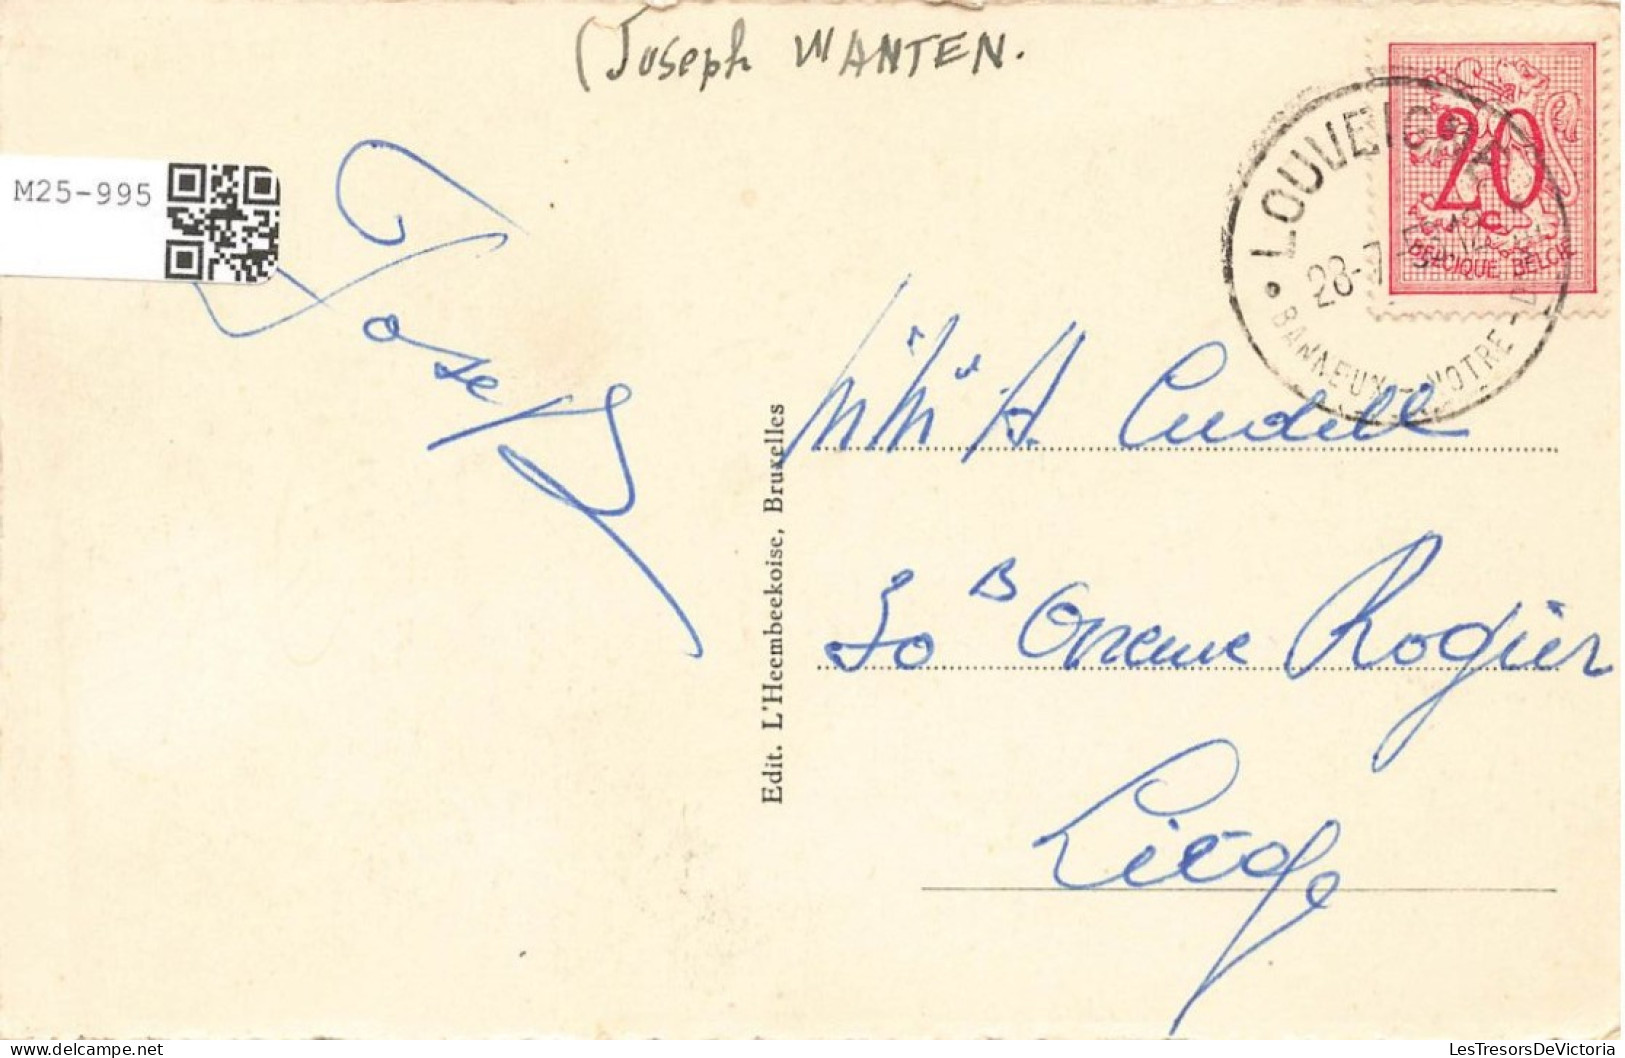 (Joseph WANTEN.
M25-995
Joseph
Edit. L'Heembeekoise, Bruxelles
LOUVEIGNÉ
28-7
BANNEUX - NOTRE - D
20 c
BELGIQUE BELGIE
A. Cudell
30 B Avenue Rogier
Liège
LesTresorsDeVictoria